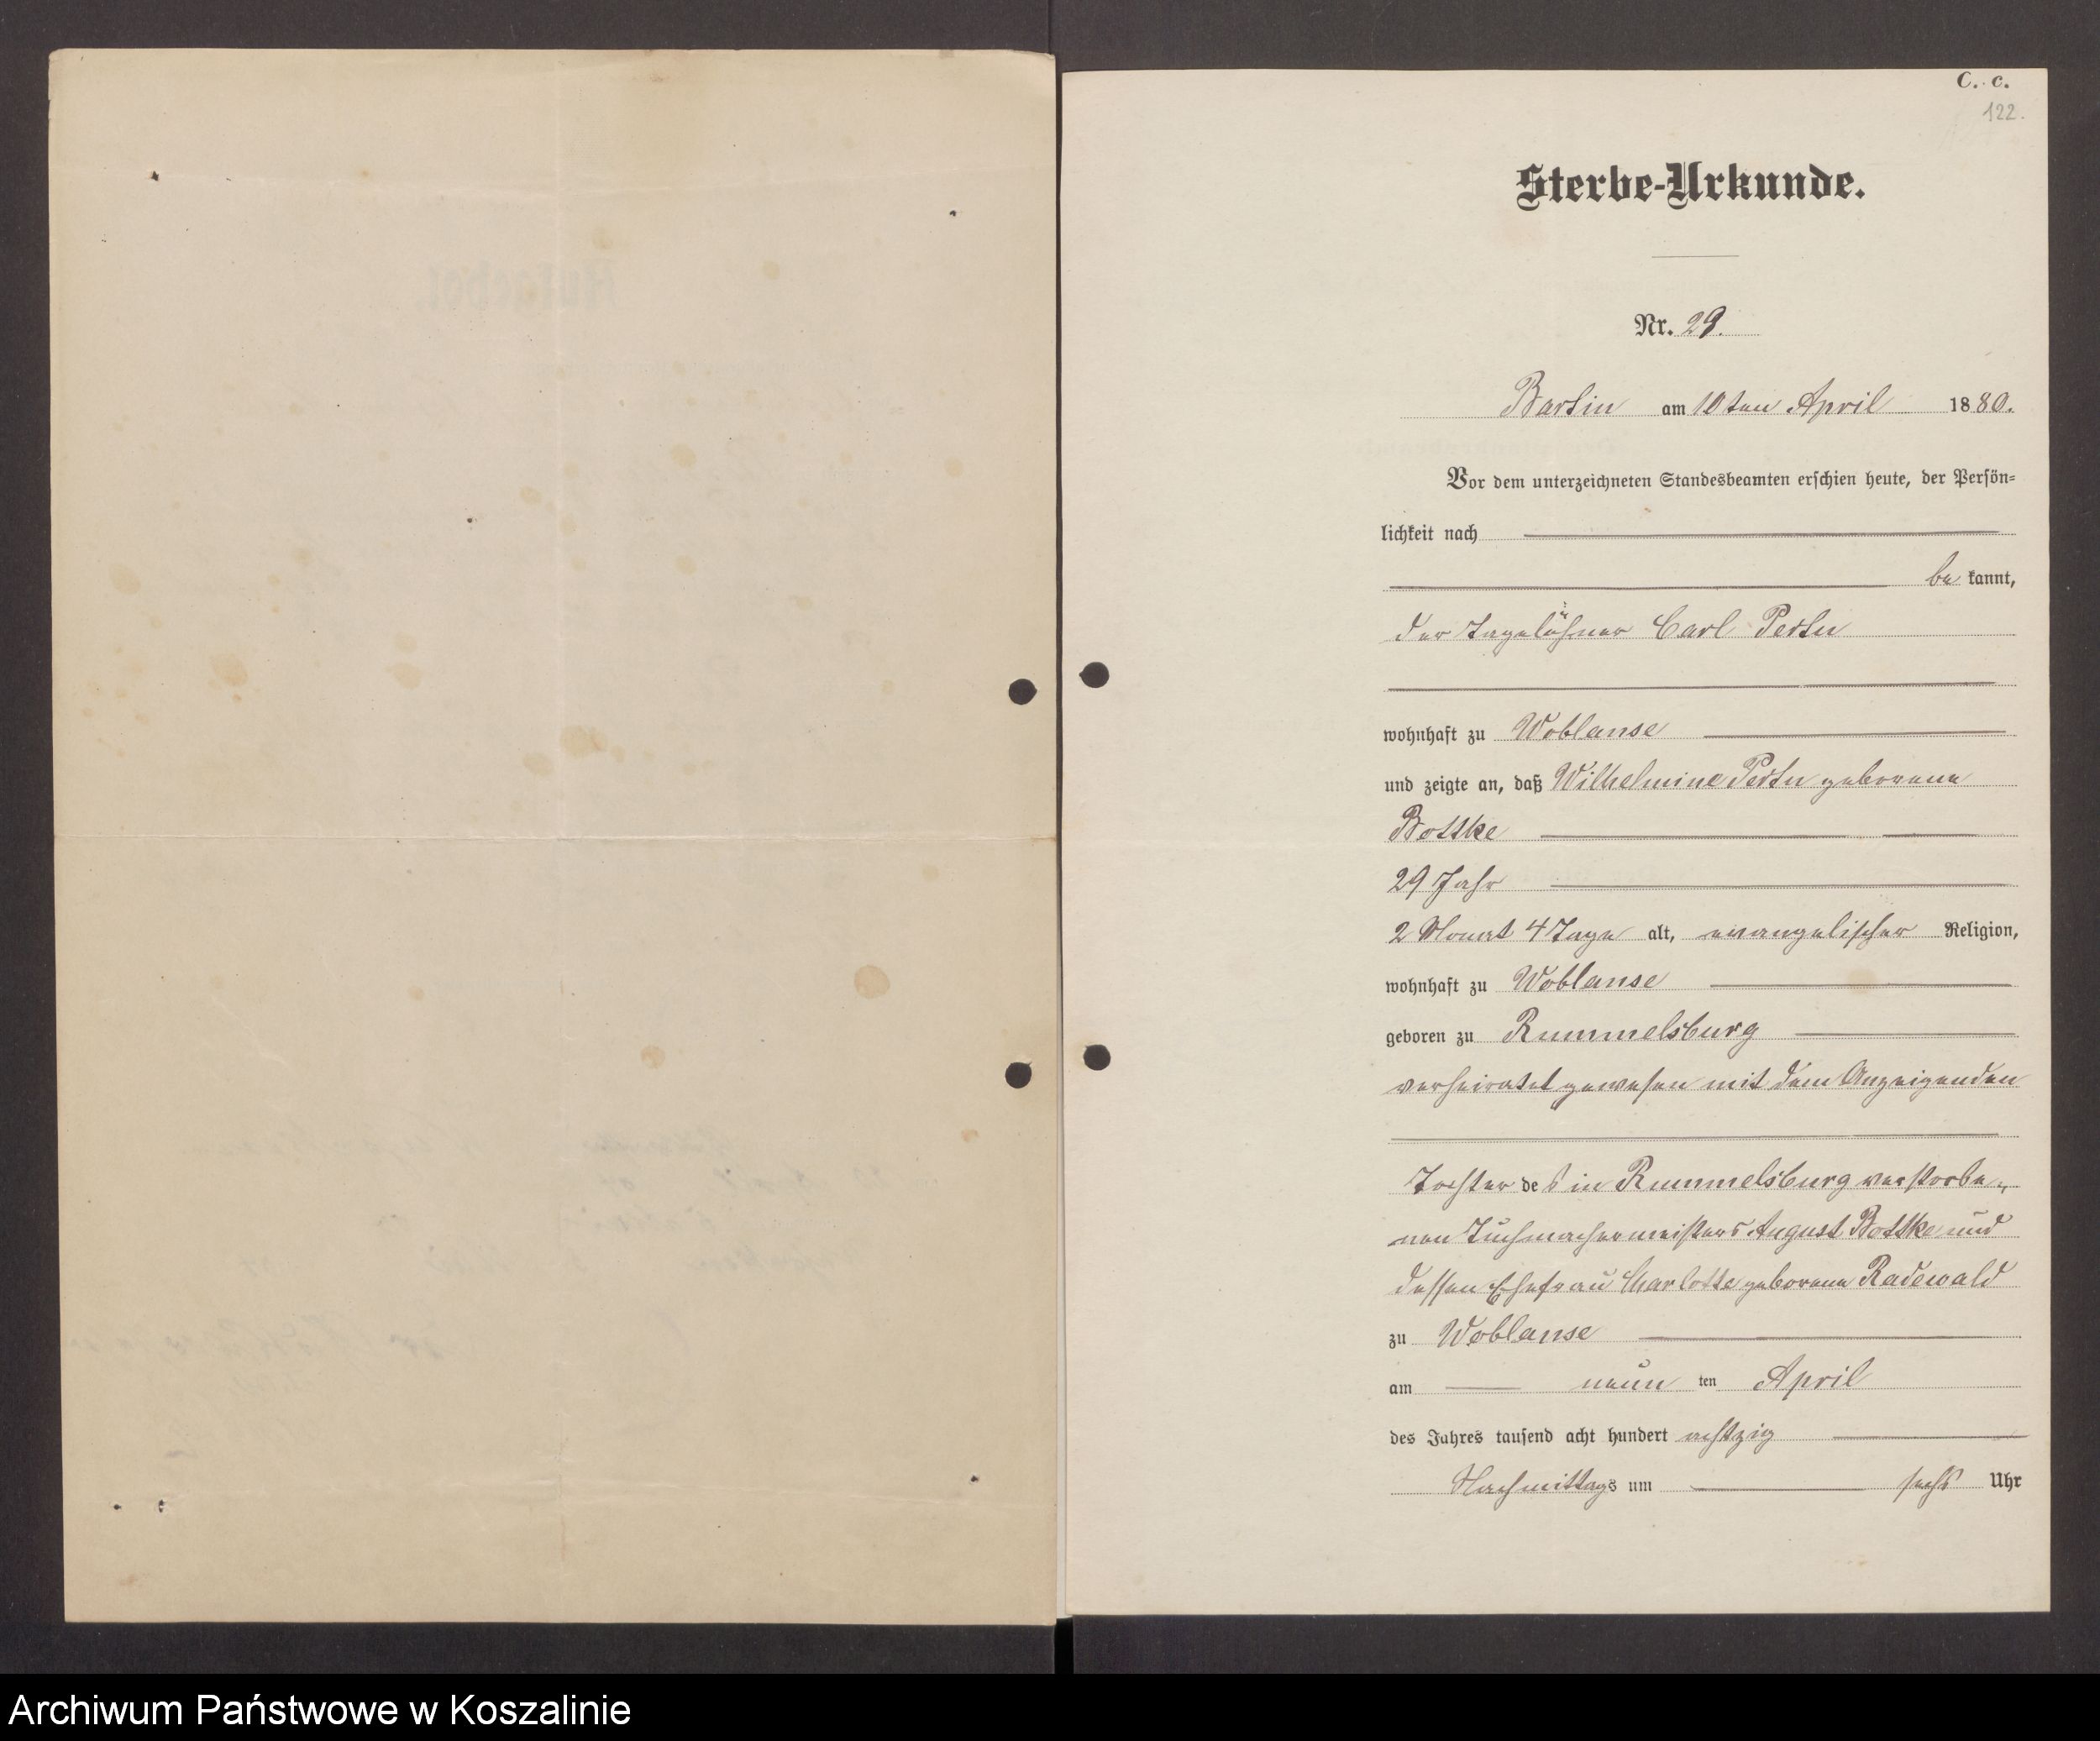 C. c.
122.
Sterbe-Urkunde.
Nr. 29.
Bartin am 10ten April 1880.
Vor dem unterzeichneten Standesbeamten erschien heute, der Persön-
lichkeit nach
be kannt,
der Tagelöhner Carl
wohnhaft zu Woblanse
und zeigte an, daß Wilhelmine geborene
Bottke
29 Jahr
2 Monat 4 Tage alt, evangelischer Religion,
wohnhaft zu Woblanse
geboren zu Rummelsburg
verheiratet gewesen mit dem Anzeigenden
Tochter des in Rummelsburg verstorbe-
nen Tuchmachermeisters August Bottke und
dessen Ehefrau Charlotte geborene Radewald
zu Woblanse
am neun ten April
des Jahres tausend acht hundert achtzig
Nachmittags um sechs Uhr
Archiwum Państwowe w Koszalinie